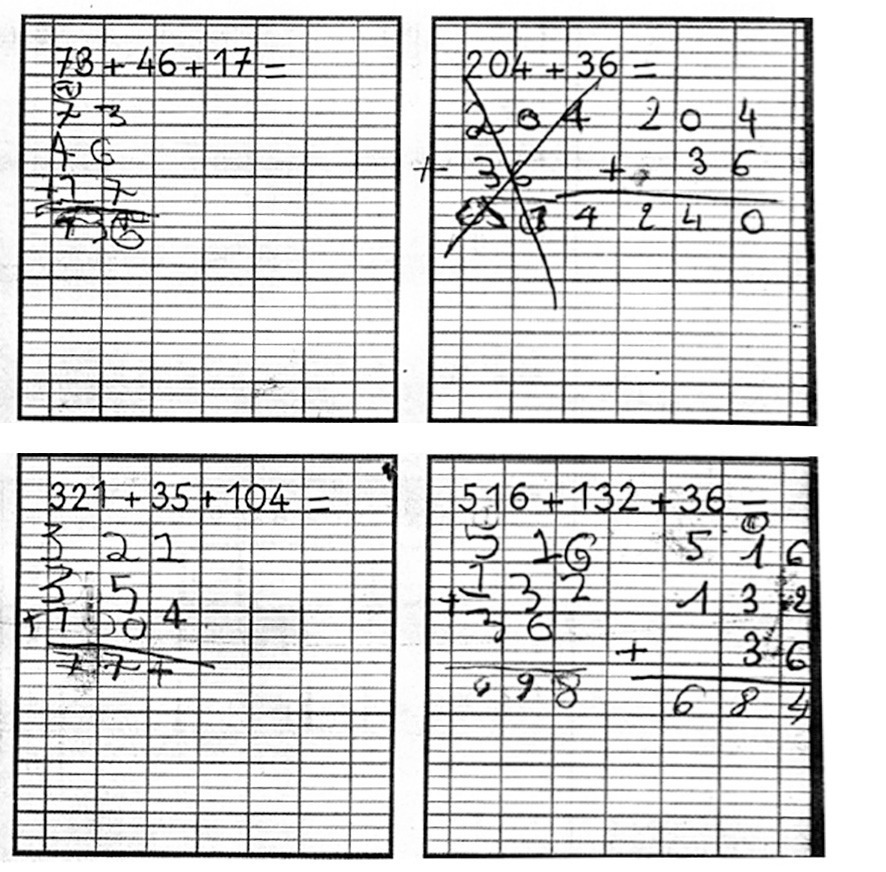 73 + 46 + 17 =
7 3
4 6
+ 1 7
1 3 6
204 + 36 =
2 0 4 2 0 4
+ 3 6 + 3 6
4 2 4 0
321 + 35 + 104 =
3 2 1
3 5
+ 1 0 4
7 7
516 + 132 + 36 =
5 1 6 5 1 6
+ 1 3 2 1 3 2
3 6 + 3 6
9 8 6 8 4